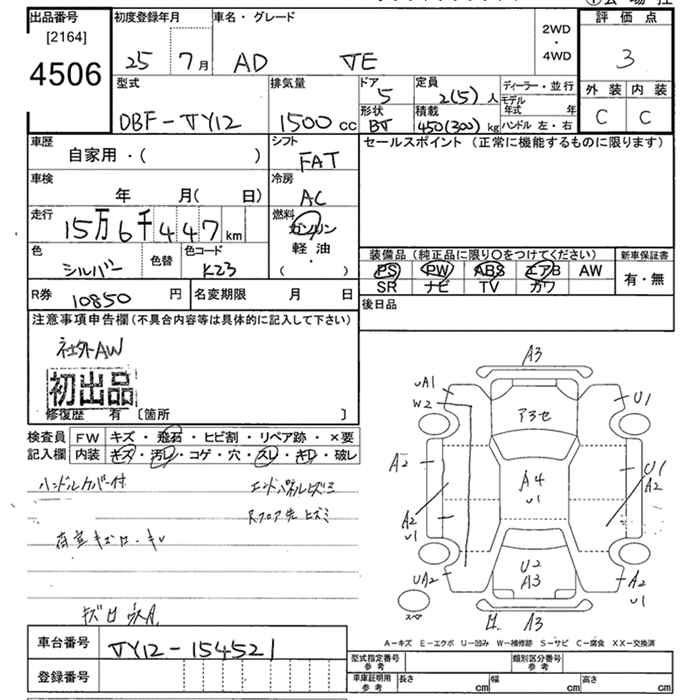 出品番号 初度登録年月 車名・グレード 2WD・4WD 評価点
[2164]
4506
25 7月 AD VE 3
型式 排気量 ドア 定員 ディーラー・並行 外装 内装
DBF-VY12 1500cc 5 2(5)人 モデル年式 年 C C
形状 積載 ハンドル 左・右
BT 450(300)kg
車歴 シフト セールスポイント(正常に機能するものに限ります)
自家用・( ) FAT
車検 冷房
年 月( 日) AC
走行 燃料
15万6千447km ガソリン
軽油
・
( )
色 色替 色コード 装備品(純正品に限り○をつけてください) 新車保証書
シルバー K23 PS PW ABS エアB AW 有・無
SR ナビ TV カワ
R券 10850円 名変期限 月 日 後日品
注意事項申告欄(不具合内容等は具体的に記入して下さい)
社外AW
初出品
修復歴 有[箇所 ]
検査員 FW キズ・飛石・ヒビ割・リペア跡・×要
記入欄 内装 キズ・汚レ・コゲ・穴・スレ・キレ・破レ
ハンドルカバー付 エンドパネルヒズミ
Rフロア先ヒズミ
A3
UA1 U1
W2 アラセ
A2 A4 U1
U1 A2
A2
U1
UA2 U2 A2
A3 U1
スペア A3
A-キズ E-エクボ U-凹み W-補修跡 S-サビ C-腐食 XX-交換済
車台番号 VY12-154521
登録番号
型式指定番号 参考 類別区分番号 参考
車庫証明用 参考 長さ cm 幅 cm 高さ cm